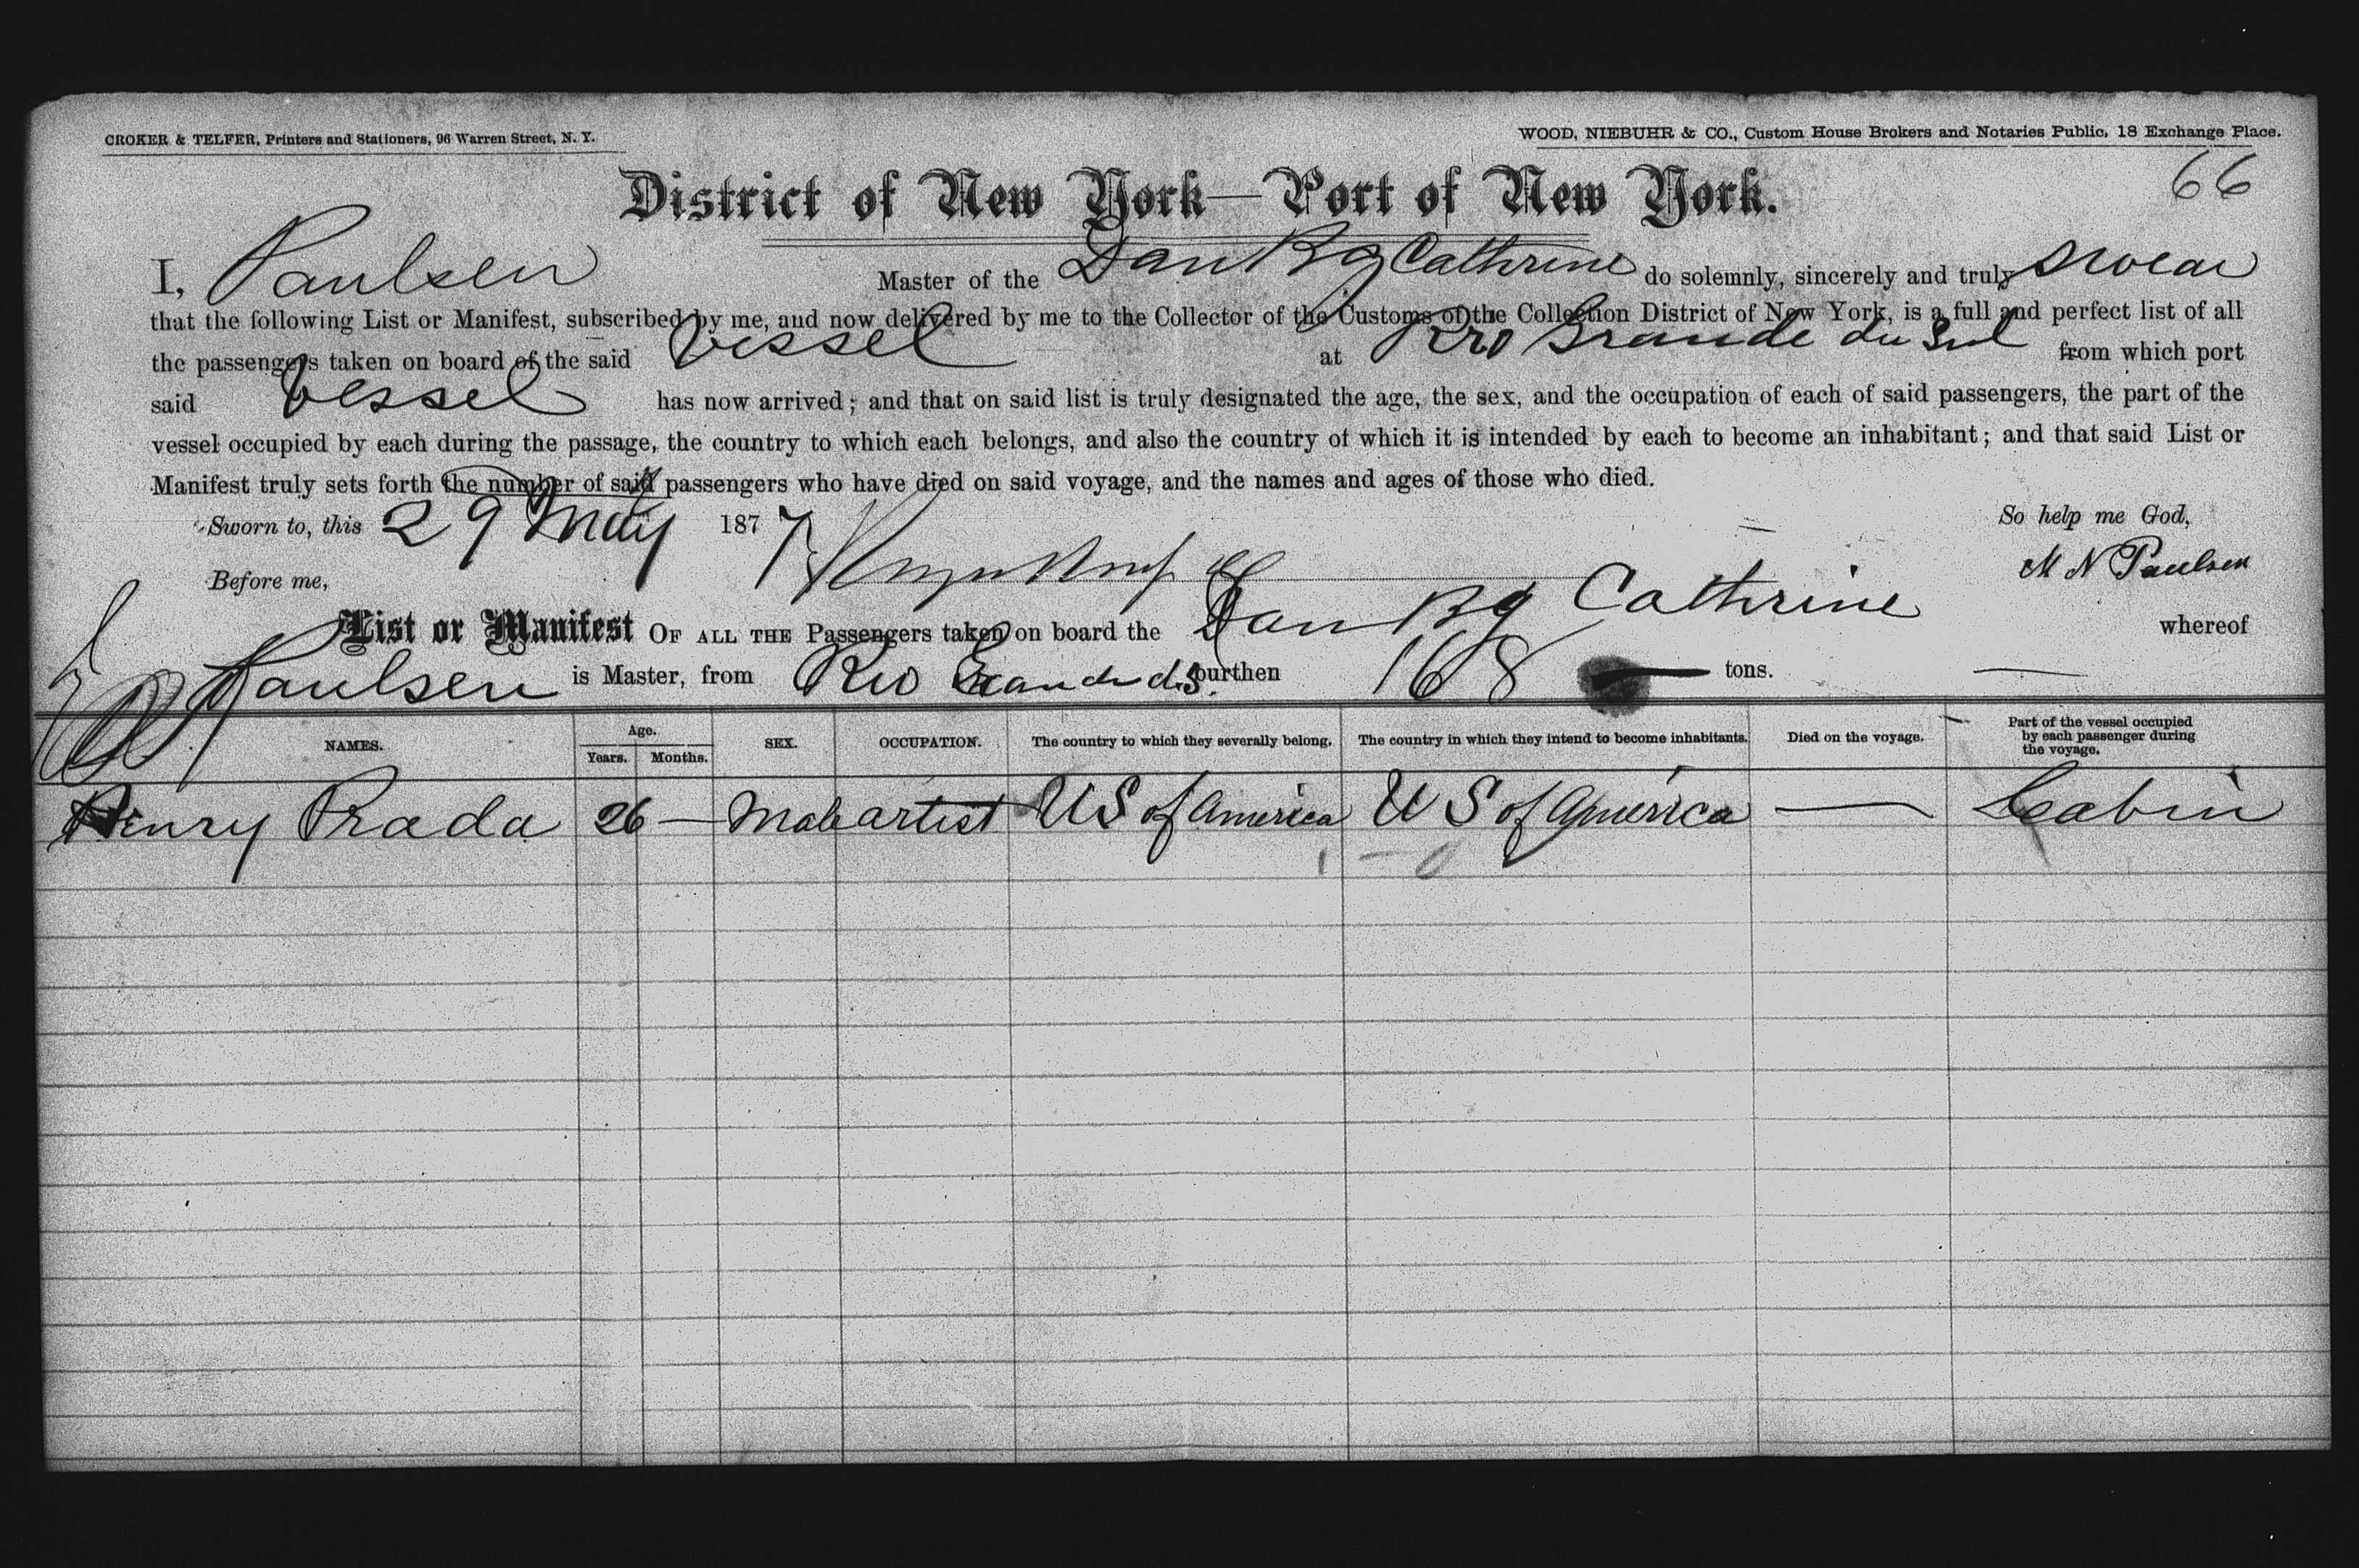 CROKER & TELFER, Printers and Stationers, 96 Warren Street, N. Y.
WOOD, NIEBUHR & CO., Custom House Brokers and Notaries Public, 18 Exchange Place.
66
District of New York—Port of New York.
I, Paulsen Master of the Dan Bg Cathrine do solemnly, sincerely and truly swear
that the following List or Manifest, subscribed by me, and now delivered by me to the Collector of the Customs of the Collection District of New York, is a full and perfect list of all
the passengers taken on board of the said Vessel at Rio Grande du Sul from which port
said Vessel has now arrived; and that on said list is truly designated the age, the sex, and the occupation of each of said passengers, the part of the
vessel occupied by each during the passage, the country to which each belongs, and also the country of which it is intended by each to become an inhabitant; and that said List or
Manifest truly sets forth the number of said passengers who have died on said voyage, and the names and ages of those who died.
Sworn to, this 29 May 1877 So help me God,
Before me, M N Paulsen
List or Manifest OF ALL THE Passengers taken on board the Dan Bg Cathrine whereof
Paulsen is Master, from Rio Grande d. S. burthen 168 — tons.
NAMES. Age. Years. Months. SEX. OCCUPATION. The country to which they severally belong. The country in which they intend to become inhabitants. Died on the voyage. Part of the vessel occupied by each passenger during the voyage.
Henry Prada 26 — Male artist US of America U S of America — Cabin